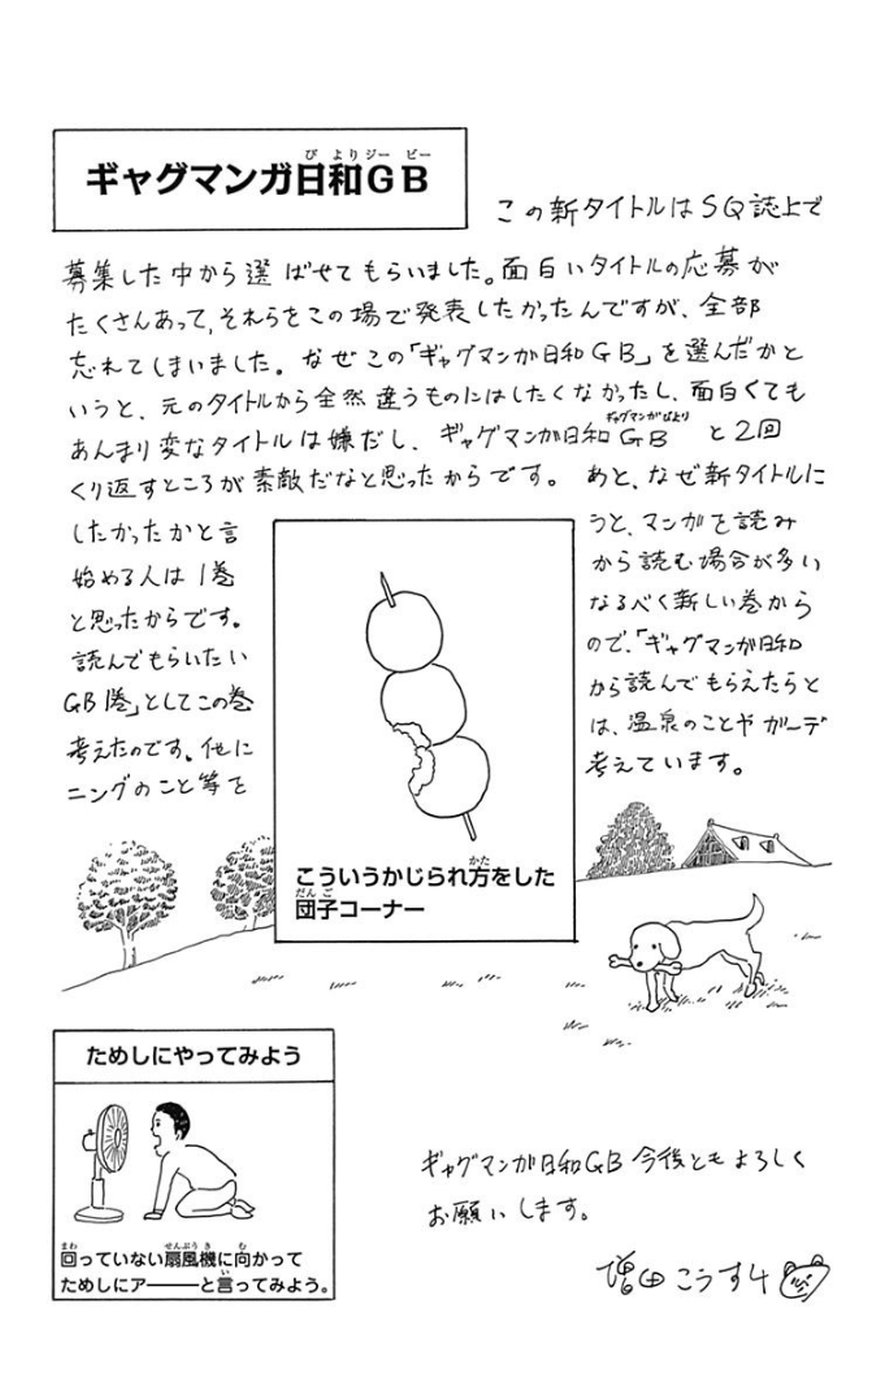 ギャグマンガ日和GB
この新タイトルはSQ誌上で
募集した中から選ばせてもらいました。面白いタイトルの応募が
たくさんあって、それらをこの場で発表したかったんですが、全部
忘れてしまいました。なぜこの「ギャグマンガ日和GB」を選んだかと
いうと、元のタイトルから全然違うものにはしたくなかったし、面白くても
あんまり変なタイトルは嫌だし、ギャグマンガ日和GBと2回
くり返すところが素敵だなと思ったからです。あと、なぜ新タイトルに
したかったかと言うと、マンガを読み
始める人は1巻から読む場合が多い
と思ったからです。なるべく新しい巻から
読んでもらいたいので、「ギャグマンガ日和
GB1巻」としてこの巻から読んでもらえたらと
考えたのです。他には、温泉のことやガーデ
ニングのこと等を考えています。
こういうかじられ方をした
団子コーナー
ためしにやってみよう
回っていない扇風機に向かって
ためしにア───と言ってみよう。
ギャグマンガ日和GB今後ともよろしく
お願いします。
増田こうすけ